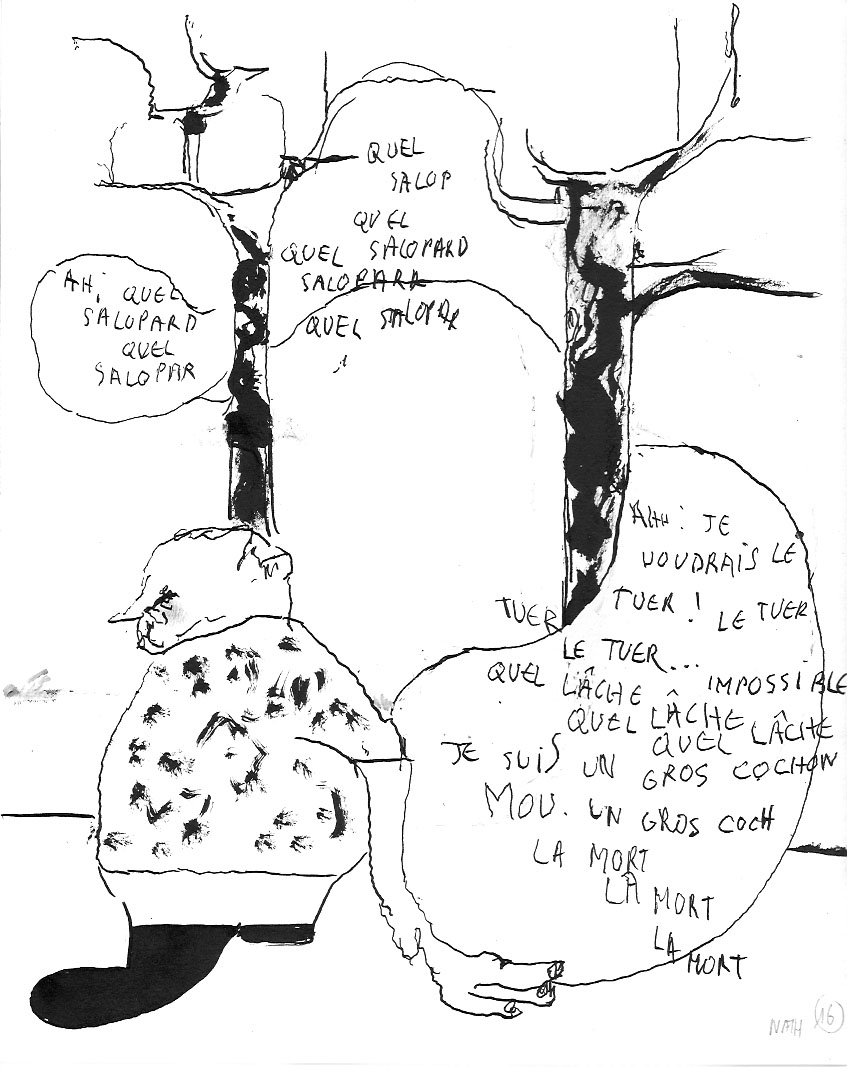 QUEL
SALOP
QUEL
QUEL SALOPARD
SALOPARR
QUEL SALOPAR
AH, QUEL
SALOPARD
QUEL
SALOPAR
AHH : JE
VOUDRAIS LE
TUER TUER ! LE TUER
LE TUER...
QUEL LÂCHE IMPOSSIBLE
QUEL LÂCHE
QUEL LÂCHE
JE SUIS UN GROS COCHON
MOU. UN GROS COCH
LA MORT
LA MORT
LA MORT
NATH 16